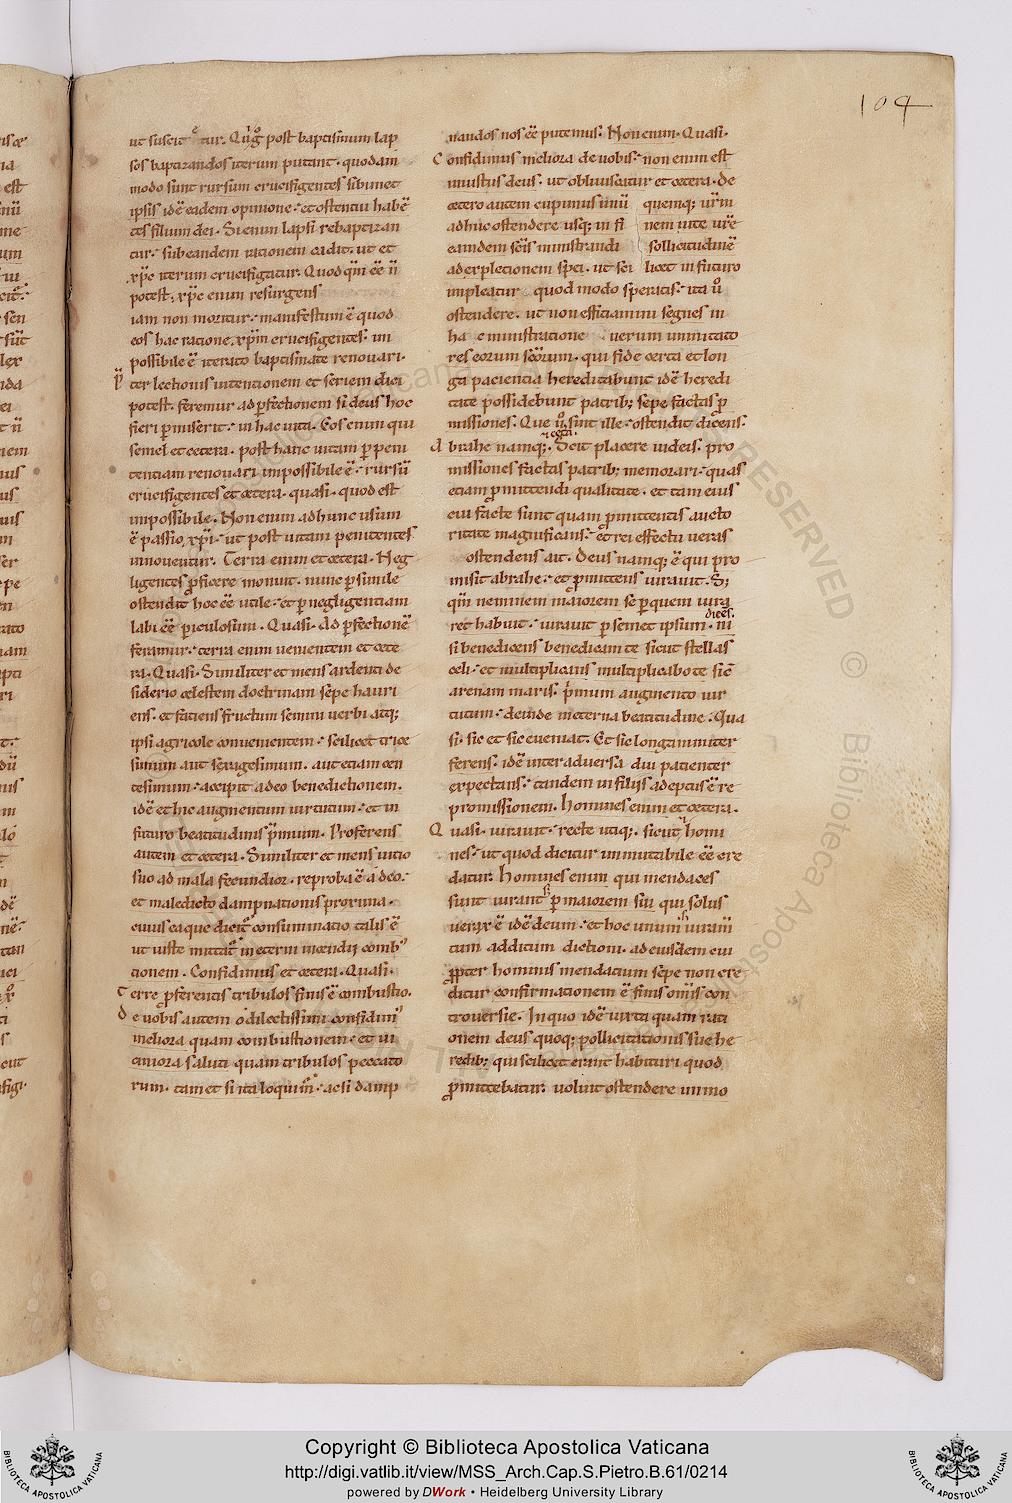 104
ut suscitetur. Qui g̊ post baptismum lap
sos baptizandos iterum putant. quodam
modo sunt rursum crucifigentes sibimet
ipsis idē eadem opinione. et ostentui habē
tes filium dei. Si enim lapsi rebaptizan
tur. sub eandem rationem cadit. ut et
xp̄c iterum crucifigatur. Quod qm̄ ēē n̄
potest. xp̄c enim resurgens
iam non moritur. manifestum ē quod
eos hac ratione xp̄m crucifigentes. im
possibile ē iterato baptismate renouari.
ter lectionis intentionem et seriem dici
potest. feremur ad ꝑfectionem si deus hoc
fieri ꝑmiserit. in hac uita. Eos enim qui
semel et cetera. post hanc uitam ꝑ peni
tentiam renouari impossibile ē. rursū
crucifigentes et cetera. quasi. quod est
impossibile. Non enim ad hunc usum
ē passio xp̄i. ut post uitam penitentes
innouentur. Terra enim et cetera. Neg
ligentes ꝓficere monuit. nunc ꝑ simile
ostendit hoc ēē utile. et ꝑ negligentiam
labi ēē ꝑiculosum. Quasi. Ad ꝑfectionē
feramur. terra enim uenientem et cete
ra. Quasi. Similiter et mens ardenti de
siderio celestem doctrinam sepe hauri
ens. et faciens fructum semini uerbi atq;
ipsi agricole conuenientem. scilicet trice
simum aut sexagesimum. aut etiam cen
tesimum. accipit a deo benedictionem.
idē et hic augmentum uirtutum. et in
futuro beatitudinis p̄mium. Proferens
autem et cetera. Similiter et mens uitio
suo ad mala fecundior. reproba ē a deo.
et maledicto dampnationis proxima.
cuius eaque dicit̄ consummatio talis ē
ut iuste mittat̄ in eterni incendii comb
tionem. Confidimus et cetera. Quasi.
Terre ꝓferentis tribulos finis ē combustio.
De uobis autem o dilectissimi confidim
meliora quam combustionem. et ui
ciniora saluti quam tribulos peccato
rum. tamet si ita loquim̄. ac si damp
nandos nos ēē putemus. Non enim. Quasi.
Confidimus meliora de uobis. non enim est
iniustus deus. ut obliuiscatur et cetera. De
cetero autem cupimus unū quemq; ur̄m
adhuc ostendere usq; in fi nem uite ur̄e
eamdem sc̄is ministrandi sollicitudinē
ad expletionem sp̄ei. ut sci licet in futuro
impleatur quod modo speratis. ita ů
ostendere. ut non efficiamini segnes in
ha c ministratione uerum imitato
res eorum sc̄orum. qui fide certa et lon
ga paciencia hereditabunt idē heredi
tate possidebunt patrib; sepe factas ꝓ
missiones. Que ů sint ille. ostendit dicens.
Abrahe namq;. Deit placere uideis. pro
missiones factas patrib; memorari. quas
etiam ꝓmittendi qualitate. et tam eius
cui facte sunt quam ꝓmittentis aucto
ritate magnificans. et rei effectu ueras
ostendens ait. Deus namq; ē qui pro
misit abrahe. et ꝓmittens iurauit. S;
qm̄ neminem maiorem se ꝑ quem iura
ret habuit. iurauit ꝑ semet ipsum. dicēs. ni
si benedicens benedicam te sicut stellas
celi. et multiplicans multiplicabo te sic̄
arenam maris. p̄mum augmento uir
tutum. deinde in eterna beatitudine. Qua
si. sic et sic eueniat. Et sic longanimiter
ferens. idē inter aduersa diu patienter
expectans. tandem in filijs adeptus ē re
promissionem. Homines enim et cetera.
Quasi. iurauit. recte utiq;. sicut homi
nes. ut quod dicitur inmutabile ēē cre
datur. Homines enim qui mendaces
sunt iurant ꝑ maiorem sui qui solus
uerax ē idē deum. et hoc unum iuram̄
tum additum dictioni. ad eiusdem cui
ꝓpter hominis mendacium sepe non cre
ditur confirmationem ē finis om̄is con
trouersie. In quo idē iuxta quam rati
onem deus quoq; pollicitationis sue he
redib; qui scilicet erant habituri quod
ꝓmittebatur. uoluit ostendere inmo
© Biblioteca Apostolica Vaticana
ALL RIGHTS RESERVED
BIBLIOTECA APOSTOLICA VATICANA
Copyright © Biblioteca Apostolica Vaticana
http://digi.vatlib.it/view/MSS_Arch.Cap.S.Pietro.B.61/0214
powered by DWork • Heidelberg University Library
BIBLIOTECA APOSTOLICA VATICANA